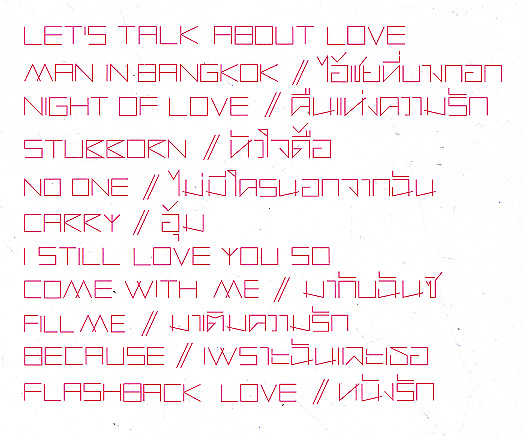 LET'S TALK ABOUT LOVE
MAN IN BANGKOK // ไอ้เชยที่บางกอก
NIGHT OF LOVE // คืนแห่งความรัก
STUBBORN // หัวใจดื้อ
NO ONE // ไม่มีใครนอกจากฉัน
CARRY // อุ้ม
I STILL LOVE YOU SO
COME WITH ME // มากับฉันซิ
FILL ME // มาเติมความรัก
BECAUSE // เพราะฉันและเธอ
FLASHBACK LOVE // หนังรัก